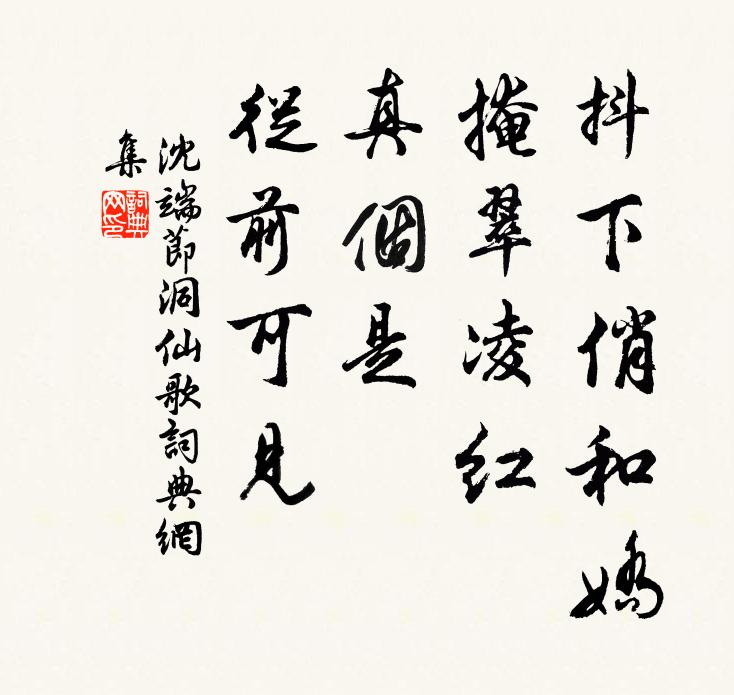 抖下俏和嬌
掩翠凌紅
真個是
從前可見
沈端節洞仙歌詞典網
集
詞典
网印